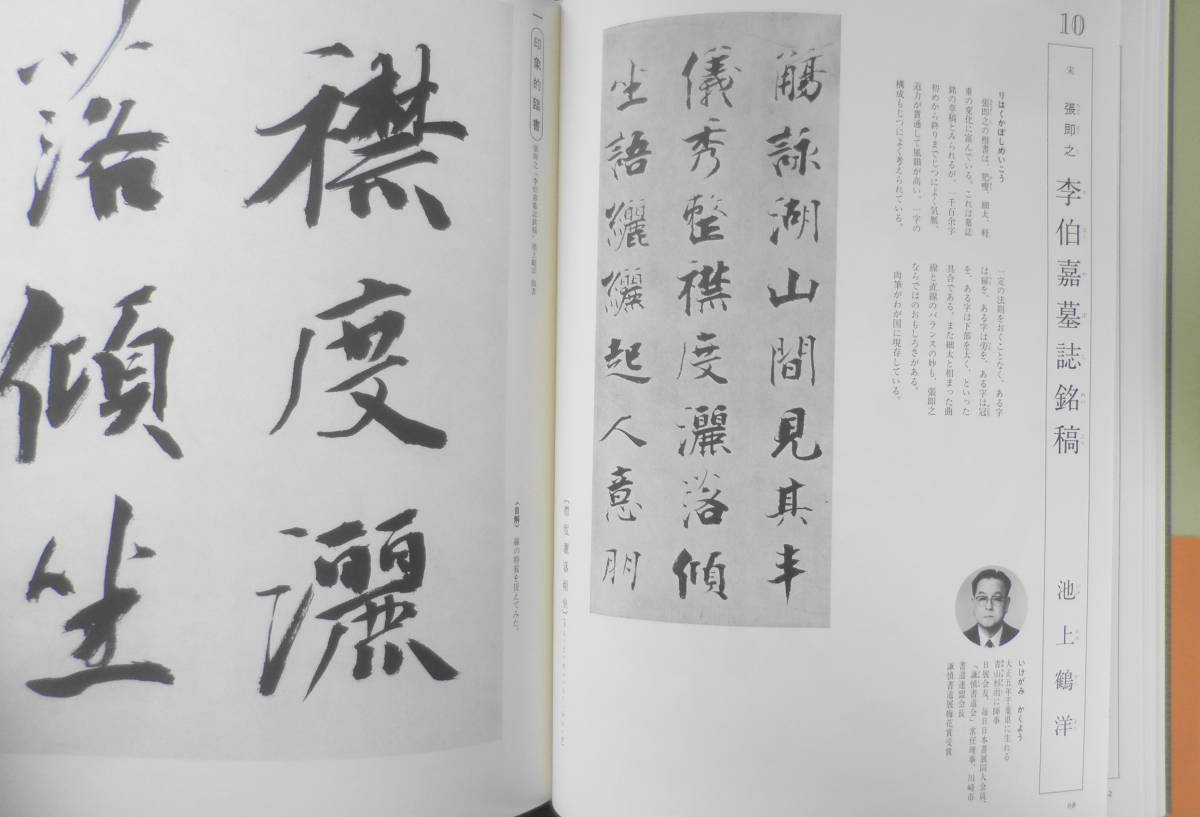 10
宋 張即之 李伯嘉墓誌銘稿 池上鶴洋
りはくかぼしめいこう
張即之の楷書は、肥痩、細太、軽
重の変化に富んでいる。これは墓誌
銘の草稿とみられるが、一千百余字
初めから終りまでじつによく気脈、
迫力が貫通して風韻が高い。一字の
構成もじつによく考えられている。
一定の法則をおくことなく、ある字
は偏を、ある字は旁を、ある字は冠
を、ある字は下部を太く、といった
具合である。また細太と相まった曲
線と直線のバランスの妙も、張即之
ならではのおもしろさがある。
肉筆がわが国に現存している。
いけがみ かくよう
大正五年千葉県に生れる
青山杉雨に師事
日展会友、毎日日本書展同人会員、
「謙慎書道会」常任理事、川崎市
書道連盟会長
謙慎書道展梅花賞受賞
68
觴詠湖山間見其丰
儀秀整襟度灑落傾
坐語纚纚起人意朋
〔襟度灑落傾坐〕
一 印象的臨書 張即之「李伯嘉墓誌銘稿」池上鶴洋 臨書
〈自解〉 線の特徴を捉えてみた。
襟度灑
落傾坐